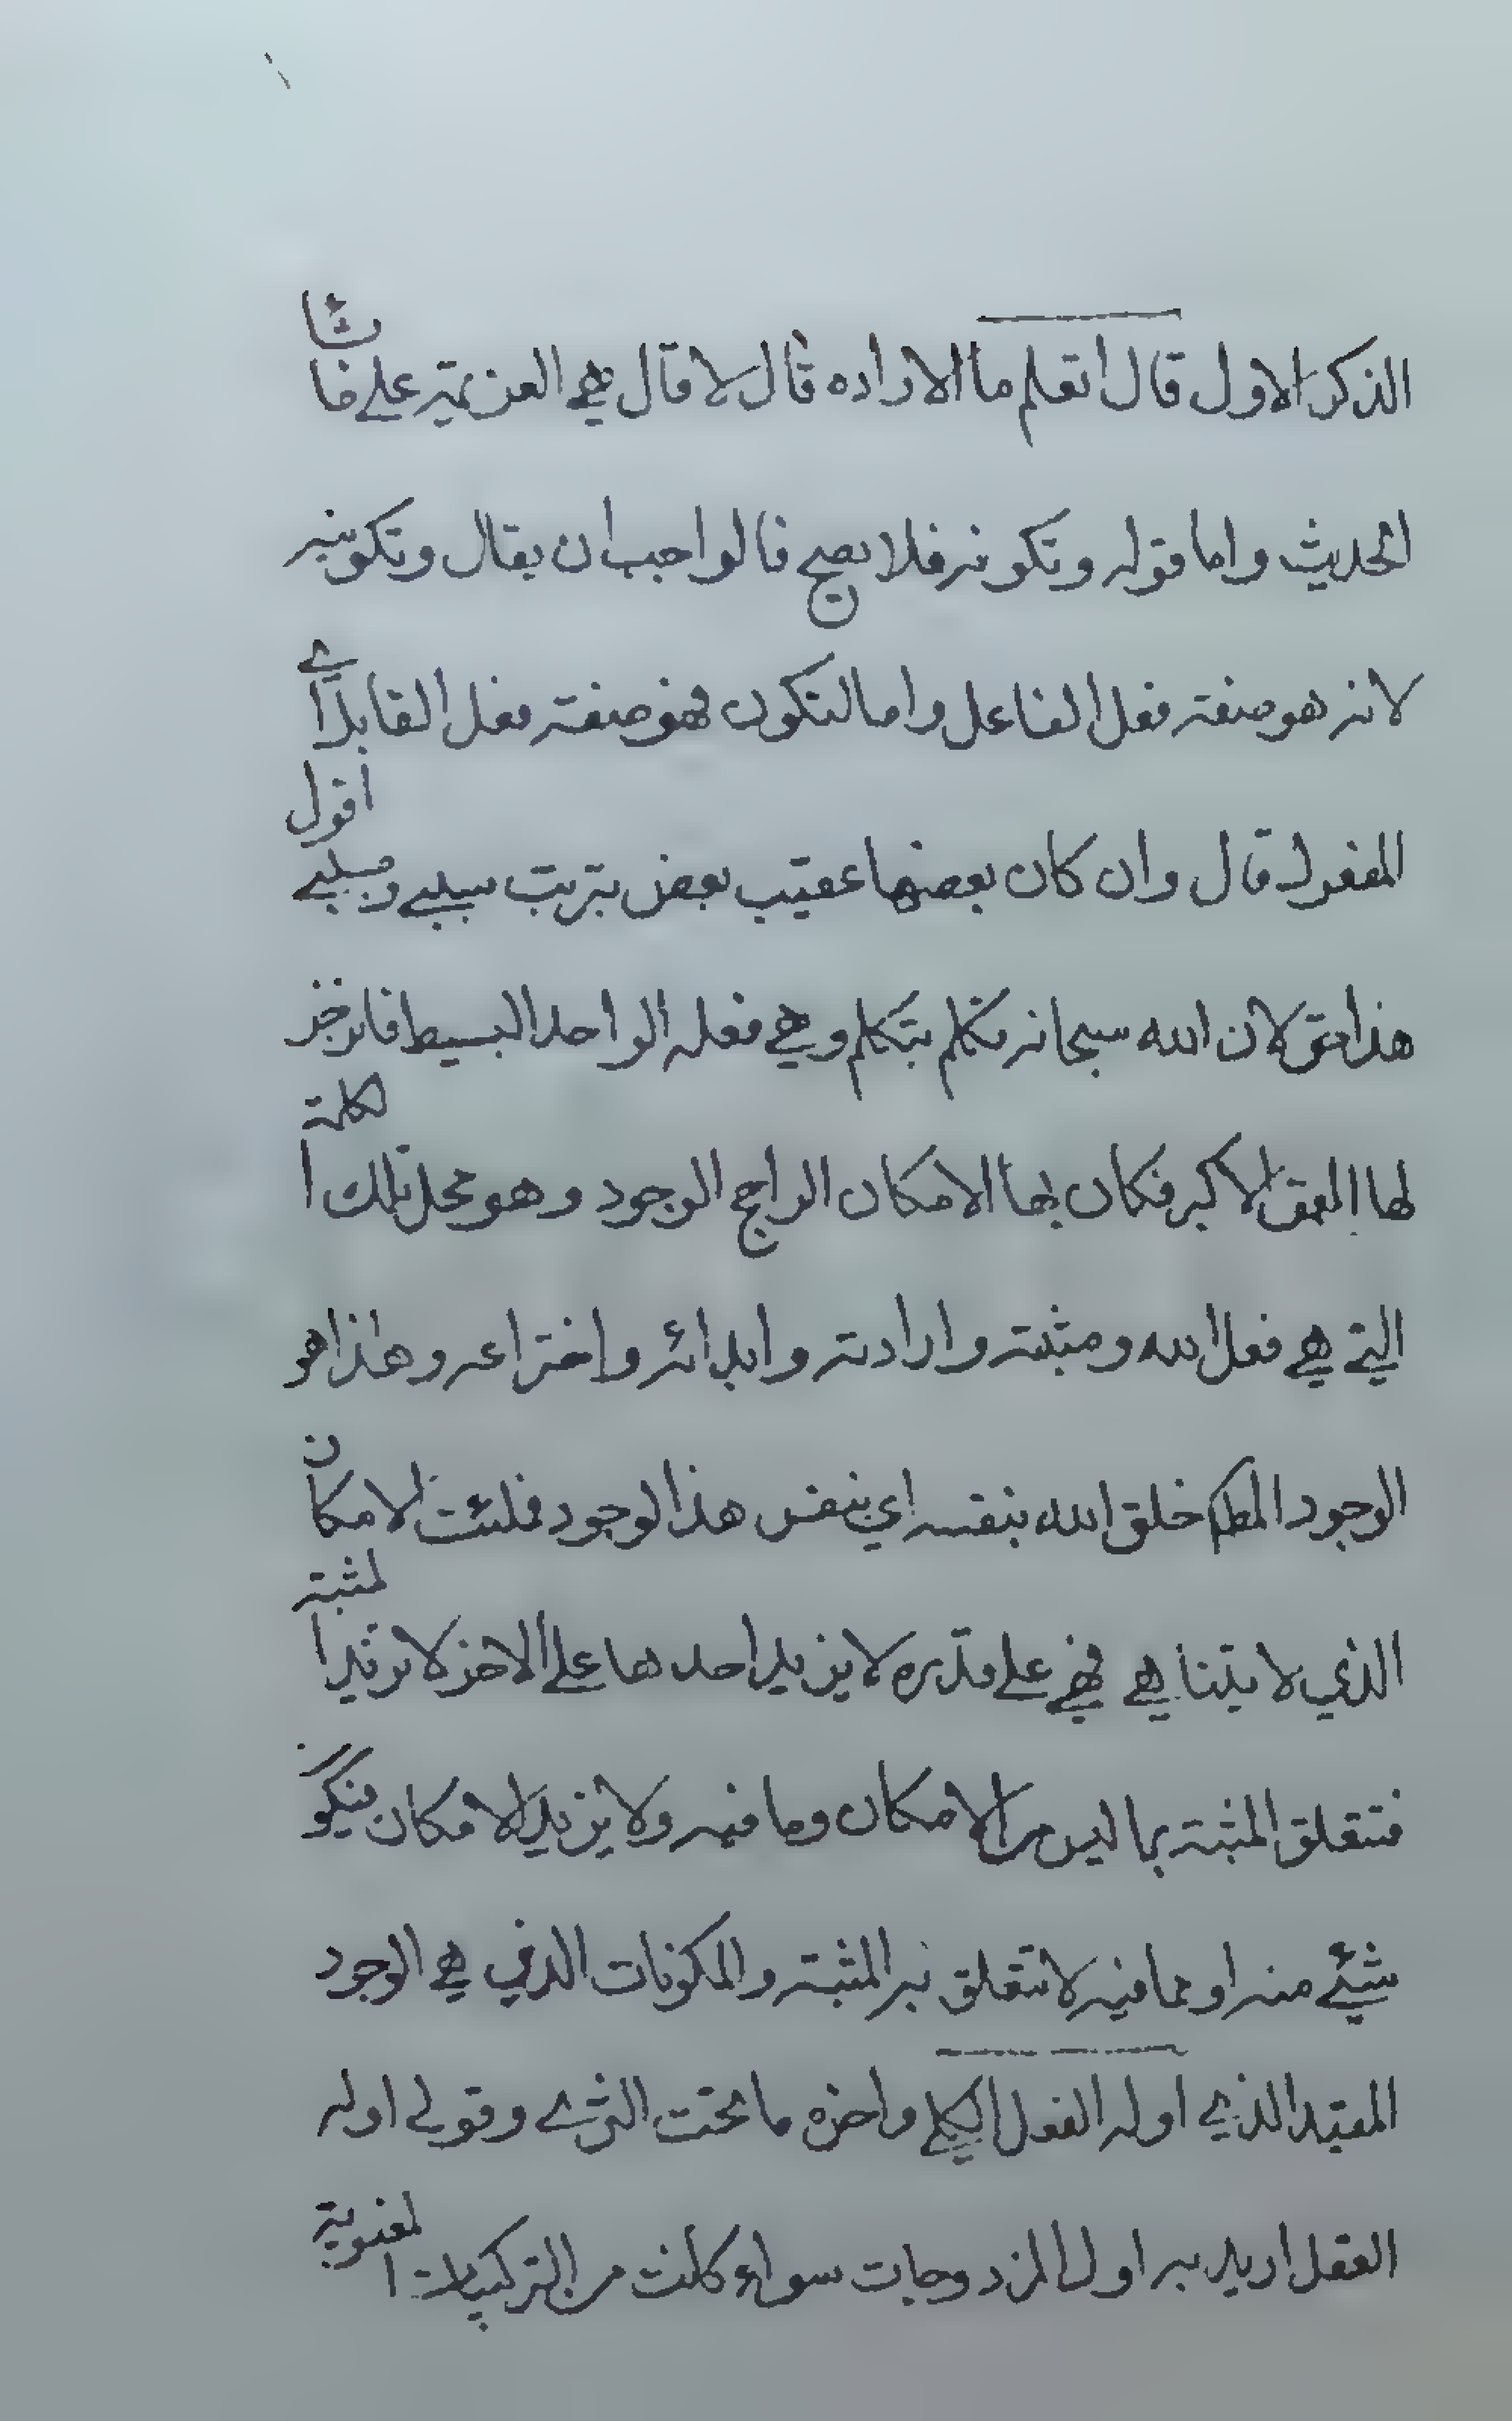 الذكر الاول قال اتعلم ما الاراده قال لا قال هي العزيمة على ما يشا
الحديث واما قوله وتكونه فلا يصح فالواجب ان يقال وتكوينه
لانه هو صفته فعل الفاعل واما التكون فهو صفته فعل القابل اي
المفعول قال وان كان بعضها عقيب بعض بترتب سببي ومسببي اقول
هذا لان الله سبحانه متكلم بتكلم وهي فعله الواحد البسيط
لها العمق الاكبر فكان بها الامكان الراجح الوجود وهو محل تلك الكلمة
التي هي فعل الله ومشيته وارادته وابدائه واختراعه وهذا هو
الوجود المطلق خلق الله بنفسه اي بنفس هذا الوجود فملئت الامكان
الذي لا يتناهي فهي على قدره لا يزيد احدها على الاخر لا تزيد المشية
فتتعلق المشية بما ليس من الامكان وما فيه ولا يزيد الامكان فيكون
شيئ منه او مما فيه لا تتعلق به المشية والمكونات الذي هي الوجود
المقيد الذي اوله العقل الكلي واخره ما تحت الثرى وقولي اوله
العقل اريد به اول المزدوجات سواء كانت من التركيبات المعنوية